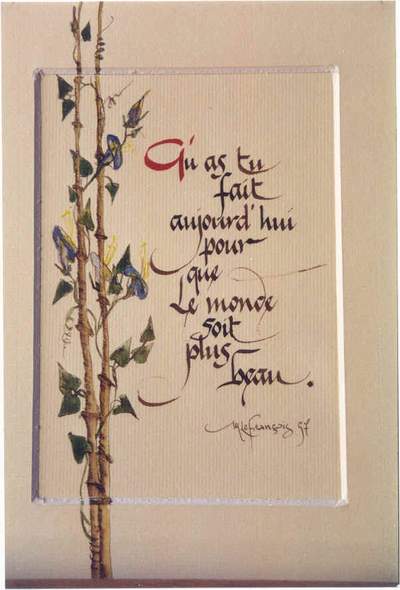 Qu as tu
fait
aujourd'hui
pour
que
Le monde
soit
plus
beau.
MLefrançois 97